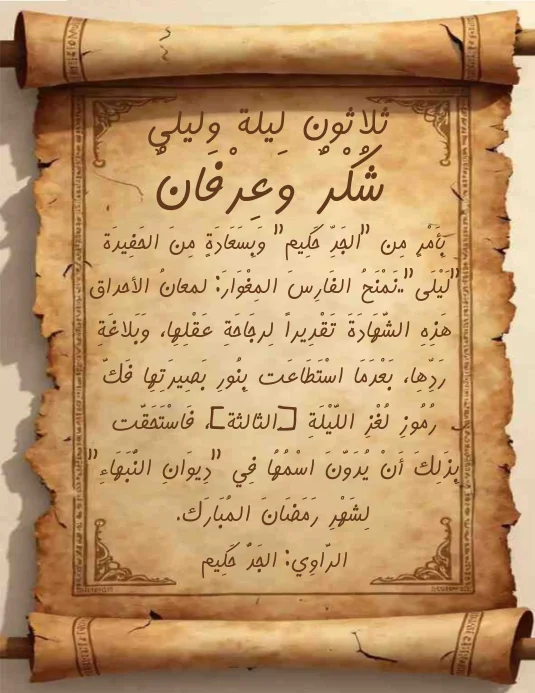 ثلاثون ليلة وليلي
شُكْرٌ وَعِرْفَانٌ
بَأَمْرٍ مِن "الجَدِّ حَكِيم" وَبِسَعَادَةٍ مِنَ الحَفِيدَة
"لَيْلَى"..نَمْنَحُ الفَارِسَ المِغْوَارَ: لمعانُ الأحداق
هَذِهِ الشَّهَادَةَ تَقْدِيراً لِرجَاحَةِ عَقْلِهَا، وَبَلاغَةِ
رَدِّهَا، بَعْدَمَا اسْتَطَاعَت بِنُورِ بَصِيرَتِهَا فَكّ
رُمُوزِ لُغْزِ اللّيْلَةِ [الثالثة]، فَاسْتَحَقّت
بِذَلِكَ أَنْ يُدَوّنَ اسْمُهَا فِي "دِيوَانِ النُّبَهَاءِ"
لِشَهْرِ رَمَضَانَ المُبَارَك.
الرّاوِي: الجَدّ حَكِيم